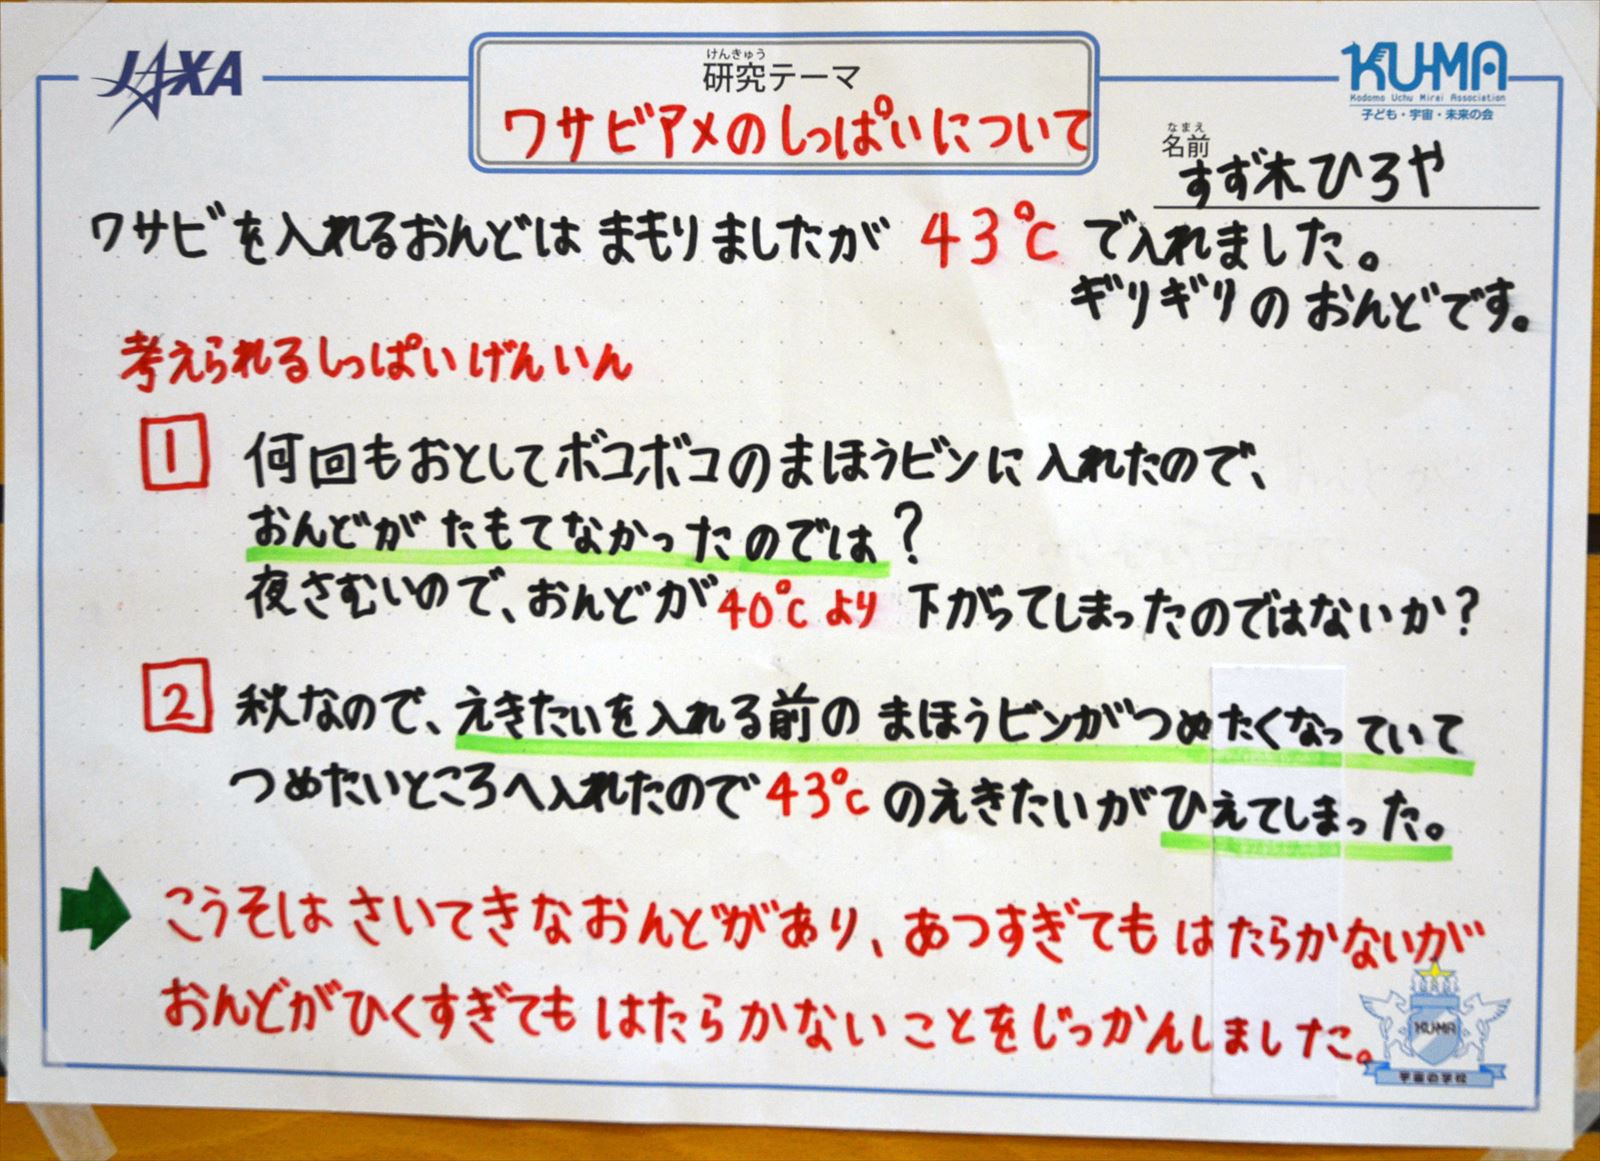 JAXA
けんきゅう
研究テーマ
ワサビアメのしっぱいについて
KU-MA
Kodomo Uchu Mirai Association
子ども・宇宙・未来の会
なまえ
名前
すず木ひろや
ワサビを入れるおんどは まもりましたが 43℃ で入れました。
ギリギリの おんどです。
考えられるしっぱいげんいん
1 何回もおとしてボコボコのまほうビンに入れたので、
おんどが たもてなかったのでは?
夜さむいので、おんどが40℃より 下がってしまったのではないか?
2 秋なので、えきたいを入れる前の まほうビンがつめたくなっていて
つめたいところへ入れたので43℃のえきたいがひえてしまった。
こうそは さいてきなおんどがあり、あつすぎても はたらかないが
おんどがひくすぎても はたらかないことをじっかんしました。
KU-MA
宇宙の学校